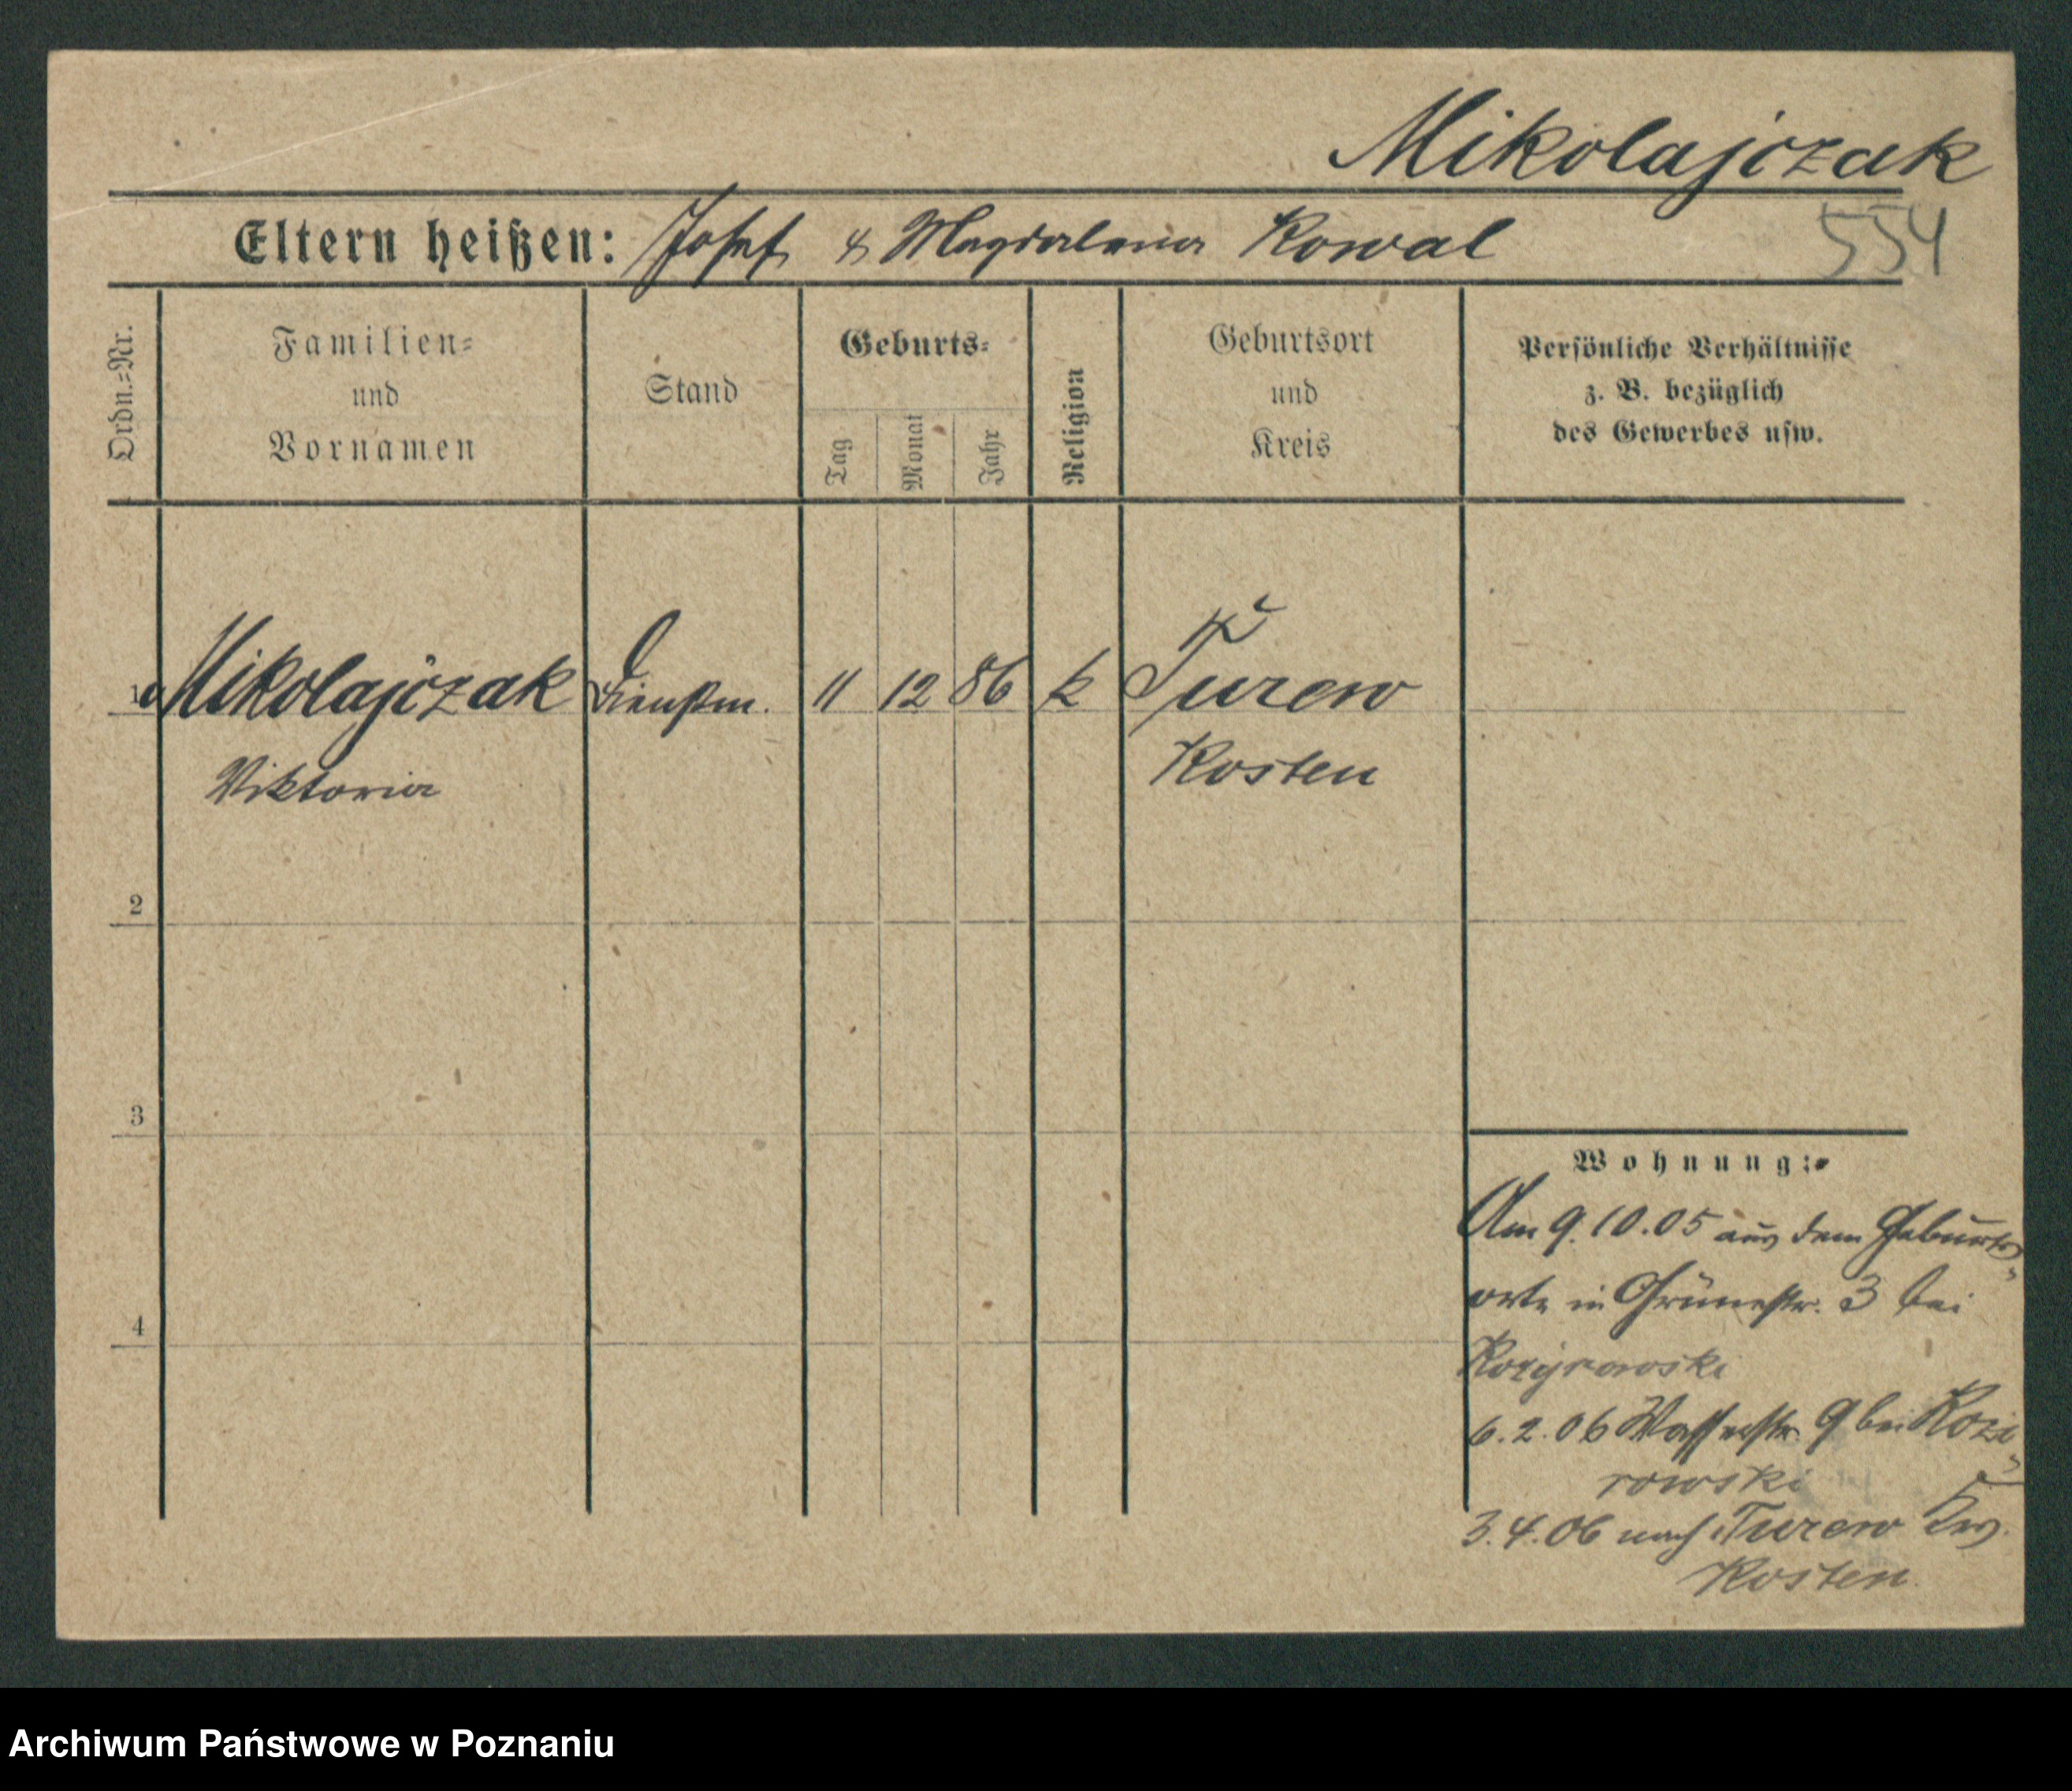 Mikolajczak
Eltern heißen: Josef & Magdalena Kowal
554
Ordn.=Nr.
Familien=
und
Vornamen
Stand
Geburts=
Tag
Monat
Jahr
Religion
Geburtsort
und
Kreis
Persönliche Verhältnisse
z. B. bezüglich
des Gewerbes usw.
1 Mikolajczak Dienstm. 11 12 86 k Turew
Viktoria Kosten
2
3
4
Wohnung:
Am 9.10.05 aus dem Geburts
orte in Grünestr. 3 bei
6.2.06 Wasserstr. 9 bei Kozi
rowski
3.4.06 nach Turew Krs.
Kosten
Archiwum Państwowe w Poznaniu